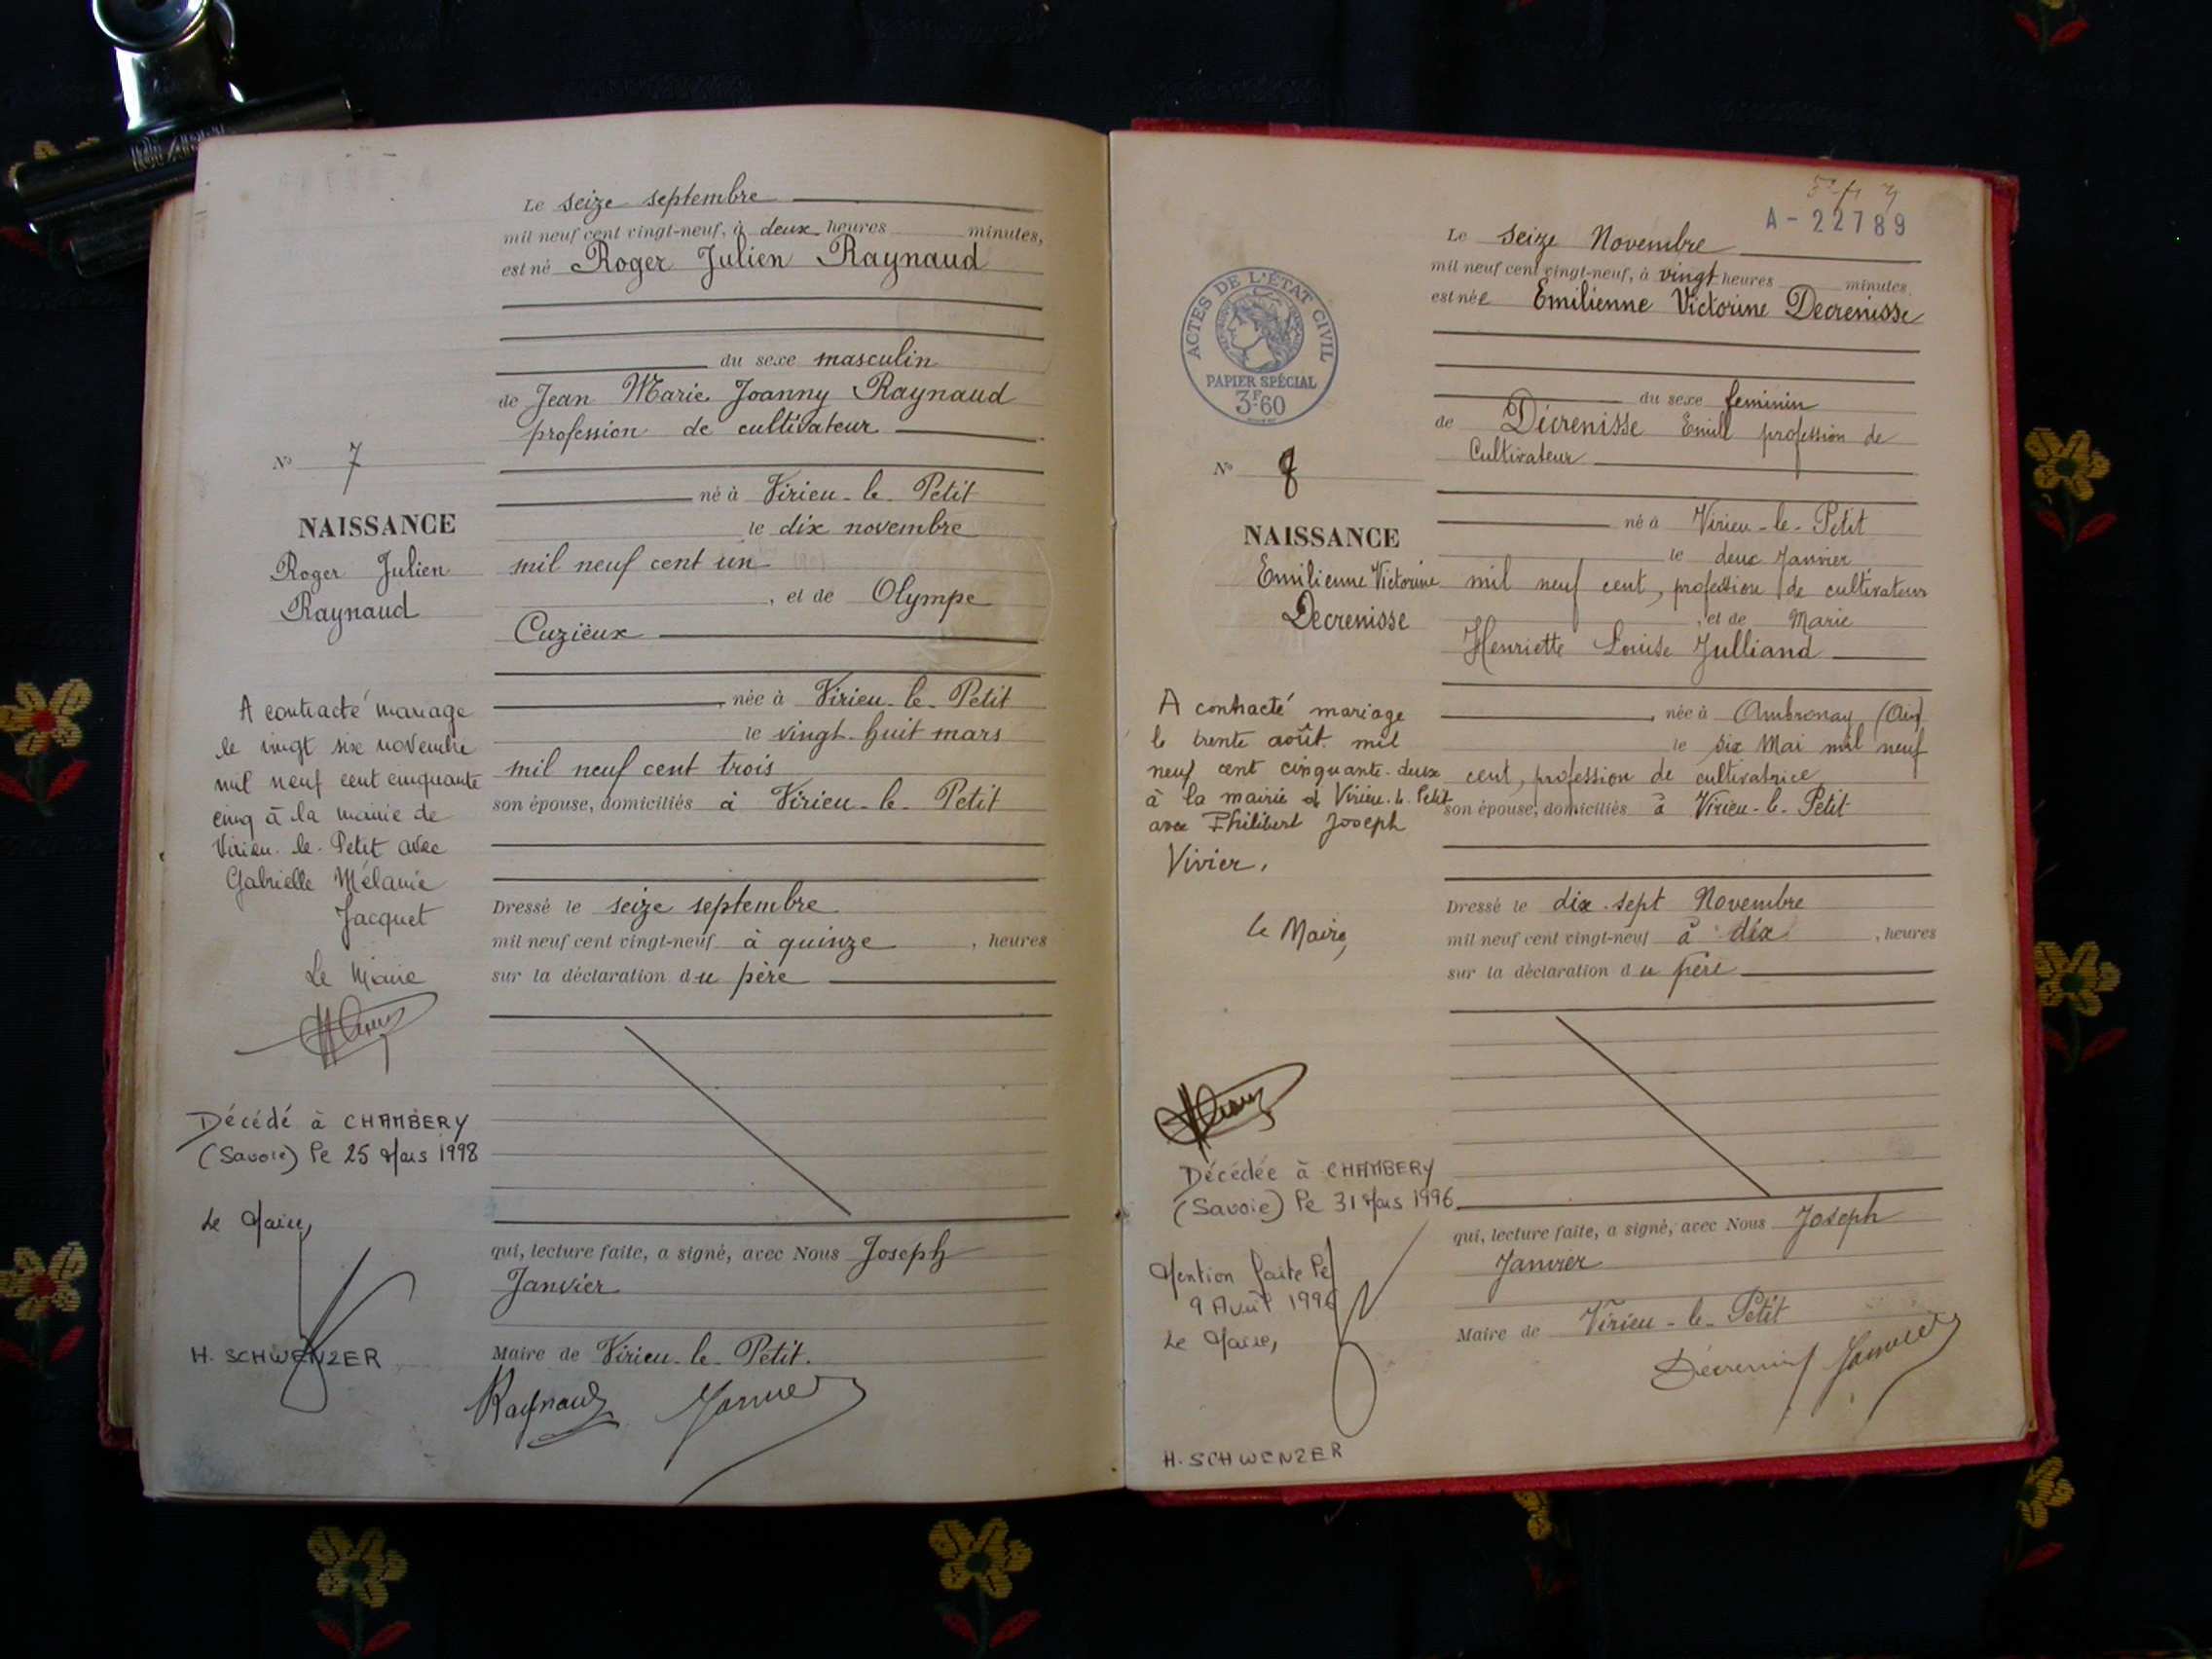 Le seize septembre
mil neuf cent vingt-neuf, à deux heures minutes,
est né Roger Julien Raynaud
du sexe masculin
de Jean Marie Joanny Raynaud
profession de cultivateur
N° 7
né à Virieu-le-Petit
NAISSANCE
le dix novembre
Roger Julien
Raynaud
mil neuf cent un
, et de Olympe
Cuzieux
née à Virieu-le-Petit
le vingt-huit mars
mil neuf cent trois
son épouse, domiciliés à Virieu-le-Petit
A contracté mariage
le vingt six novembre
mil neuf cent cinquante
cinq à la mairie de
Virieu-le-Petit avec
Gabrielle Mélanie
Jacquet
Le Maire
Dressé le seize septembre
mil neuf cent vingt-neuf à quinze , heures
sur la déclaration du père
Décédé à CHAMBERY
(Savoie) le 25 Mars 1998
Le Maire,
H. SCHWENZER
qui, lecture faite, a signé, avec Nous Joseph
Janvier
Maire de Virieu-le-Petit.
Raynaud Janvier
A-22789
Le seize Novembre
mil neuf cent vingt-neuf, à vingt heures minutes
est née Emilienne Victorine Decrenisse
ACTES DE L'ÉTAT CIVIL
PAPIER SPÉCIAL
3F60
du sexe feminin
de Décrenisse Emile profession de
Cultivateur
N° 8
né à Virieu-le-Petit
NAISSANCE
le deux Janvier
Emilienne Victorine
Decrenisse
mil neuf cent, profession de cultivateur
, et de Marie
Henriette Louise Julliand
née à Ambronay (Ain)
le six Mai mil neuf
cent, profession de cultivatrice
son épouse, domiciliés à Virieu-le-Petit
A contracté mariage
le trente août mil
neuf cent cinquante-deux
à la mairie de Virieu-le-Petit
avec Philibert Joseph
Vivier.
le Maire,
Dressé le dix-sept Novembre
mil neuf cent vingt-neuf à dix , heures
sur la déclaration du père
Décédée à CHAMBERY
(Savoie) le 31 Mars 1996
Mention faite le
9 Avril 1996
Le Maire,
H. SCHWENZER
qui, lecture faite, a signé, avec Nous Joseph
Janvier
Maire de Virieu-le-Petit
Décrenisse Janvier